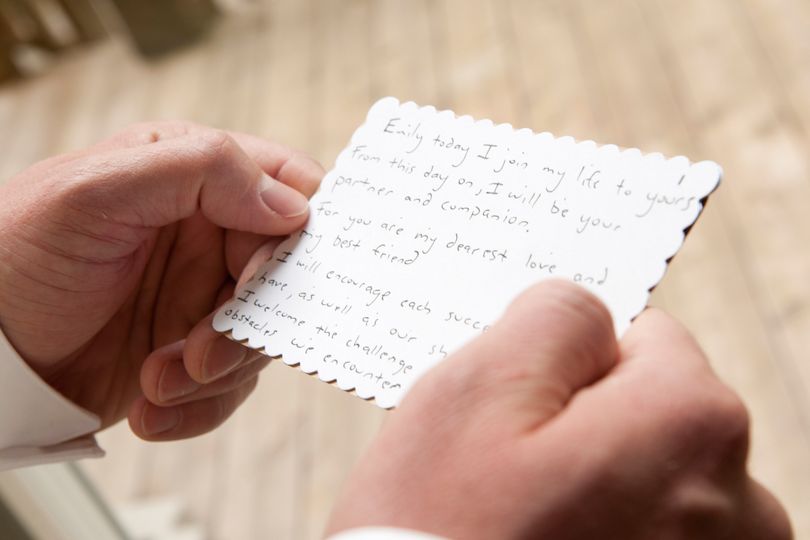 1
Emily today I join my life to yours
From this day on, I will be your
partner and companion.
For you are my dearest love and
my best friend
I will encourage each
have, as well as our
I welcome the challenge
obstacles we encounter